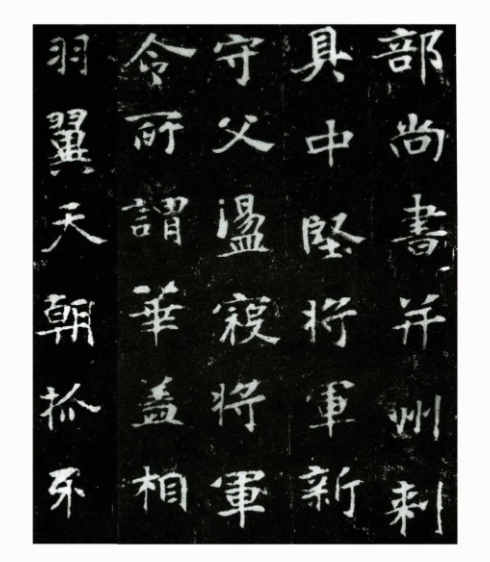 部尚書并州刺
具中堅將軍新
守父盪寇將軍
令所謂華蓋相
羽翼天朝抓牙